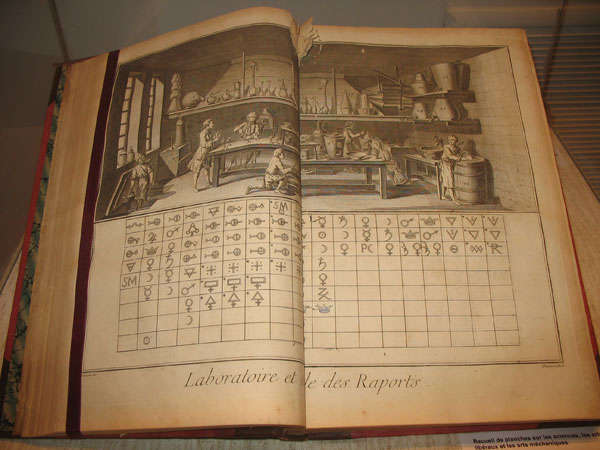 SM
SM
PC
Laboratoire et le des Raports
Recueil de planches sur les sciences, les arts
libéraux et les arts méchaniques